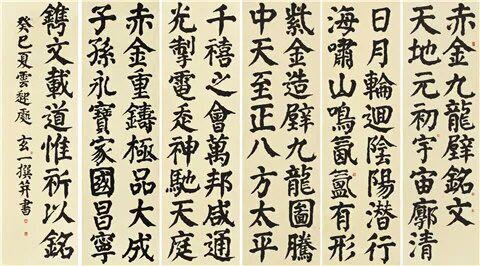 赤金九龍壁銘文
天地元初宇宙廓清
日月輪迴陰陽潛行
海嘯山鳴氤氳有形
紫金造壁九龍圖騰
中天至正八方太平
千禧之會萬邦咸通
光掣電走神馳天庭
赤金重鑄極品大成
子孫永寶家國昌寧
鐫文載道惟祈以銘
癸巳夏雲起處玄一撰并書